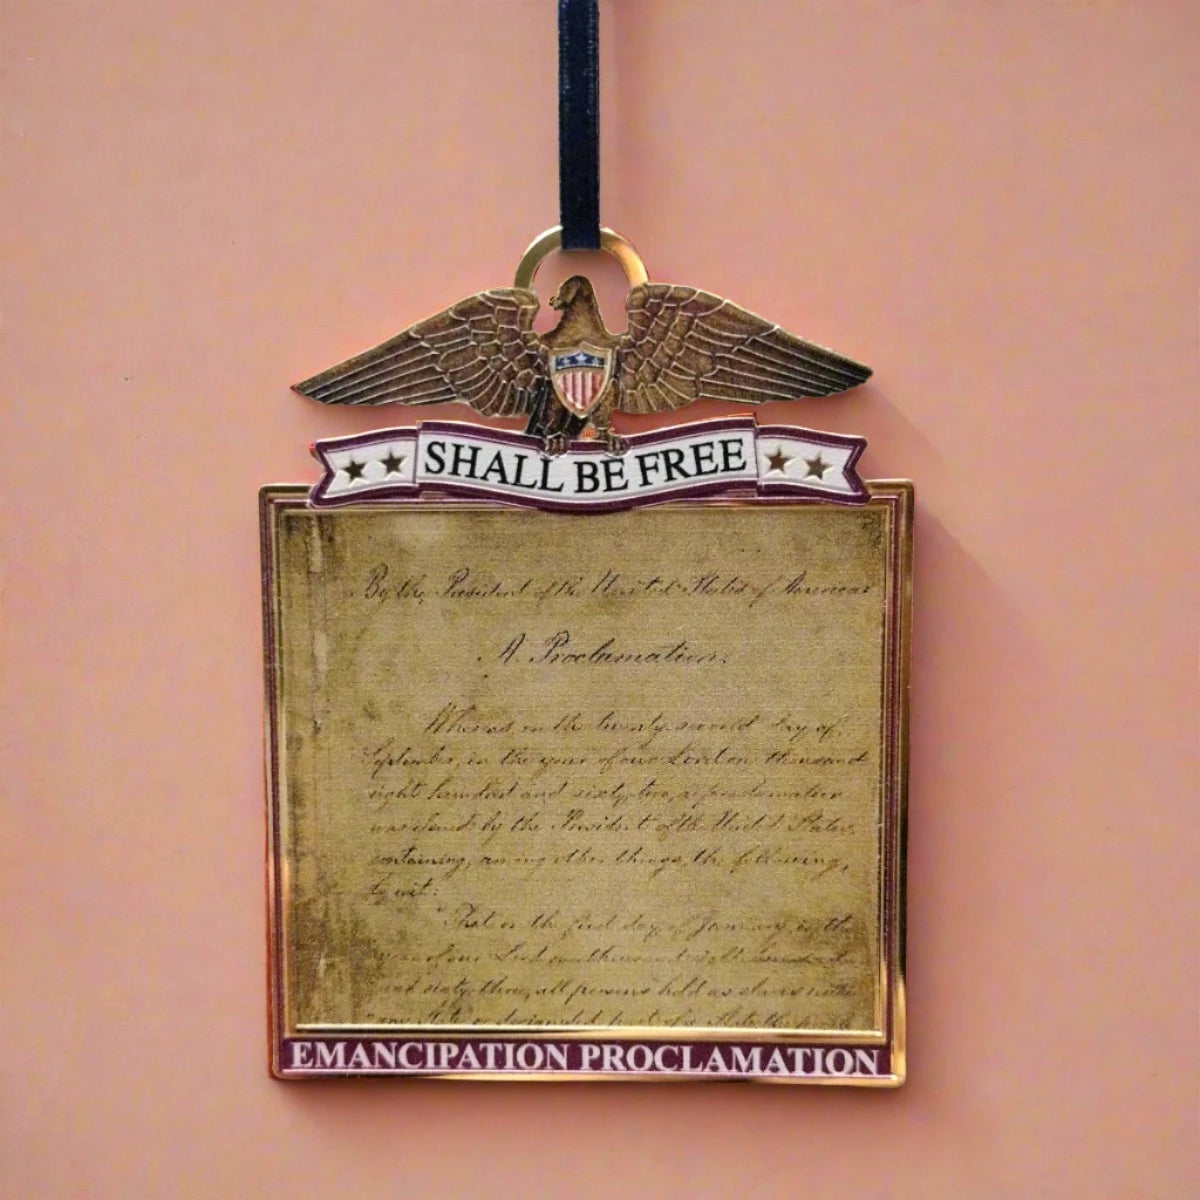 SHALL BE FREE
By the President of the United States of America:
A Proclamation.
Whereas on the twenty second day of
September, in the year of our Lord one thousand
eight hundred and sixty two, a proclamation
was issued by the President of the United States,
containing, among other things, the following,
to wit:
"That on the first day of January, in the
year of our Lord one thousand eight hundred
"and sixty-three, all persons held as slaves within
"any State or designated part of a State the people
EMANCIPATION PROCLAMATION